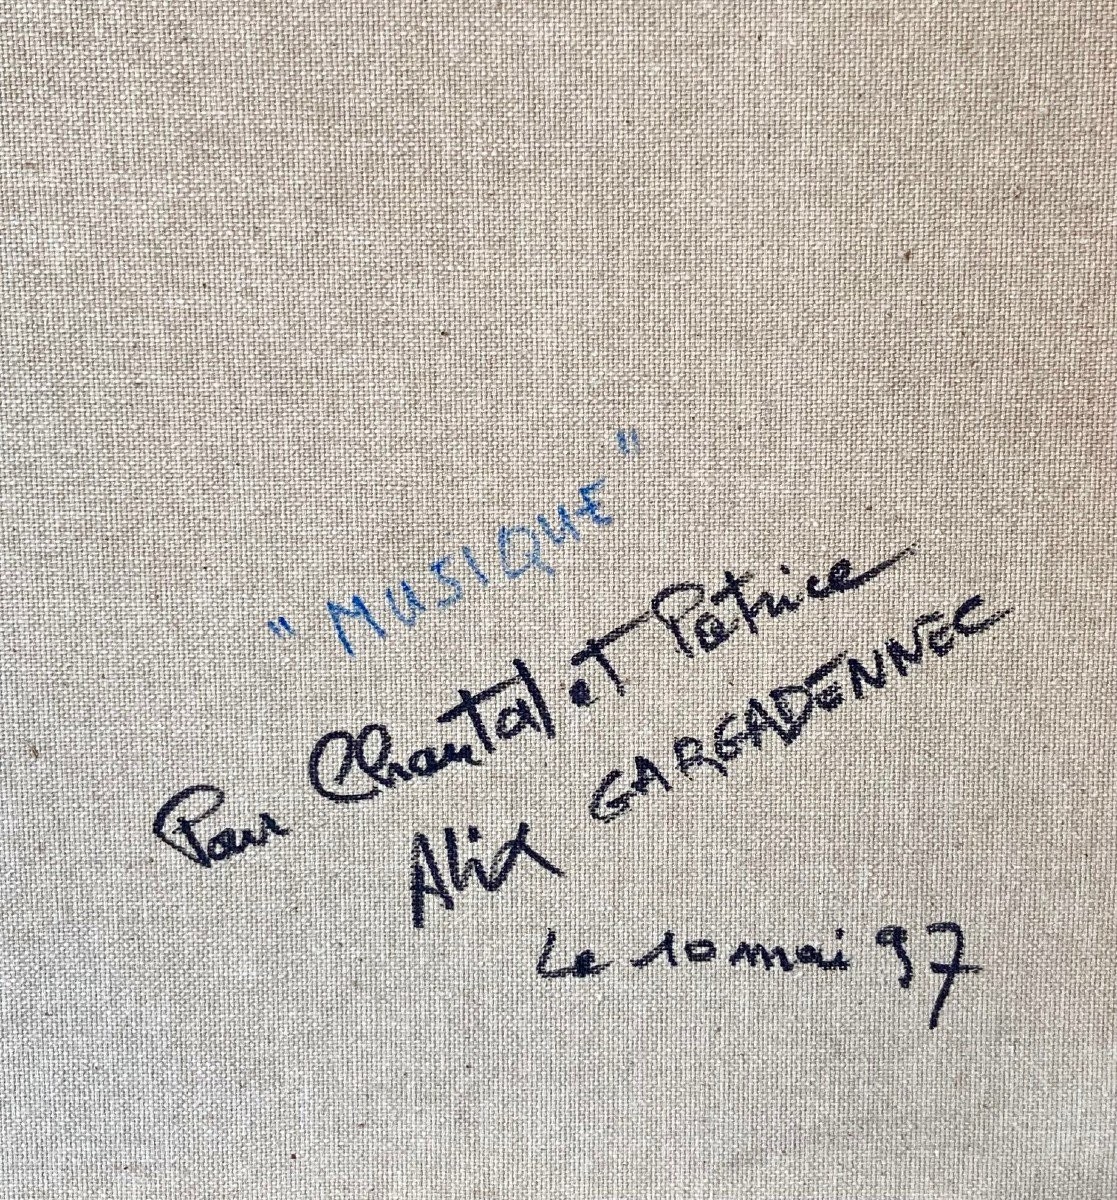 "MUSIQUE"
Pour Chantal et Patrice
Alix GARGADENNEC
Le 10 mai 97